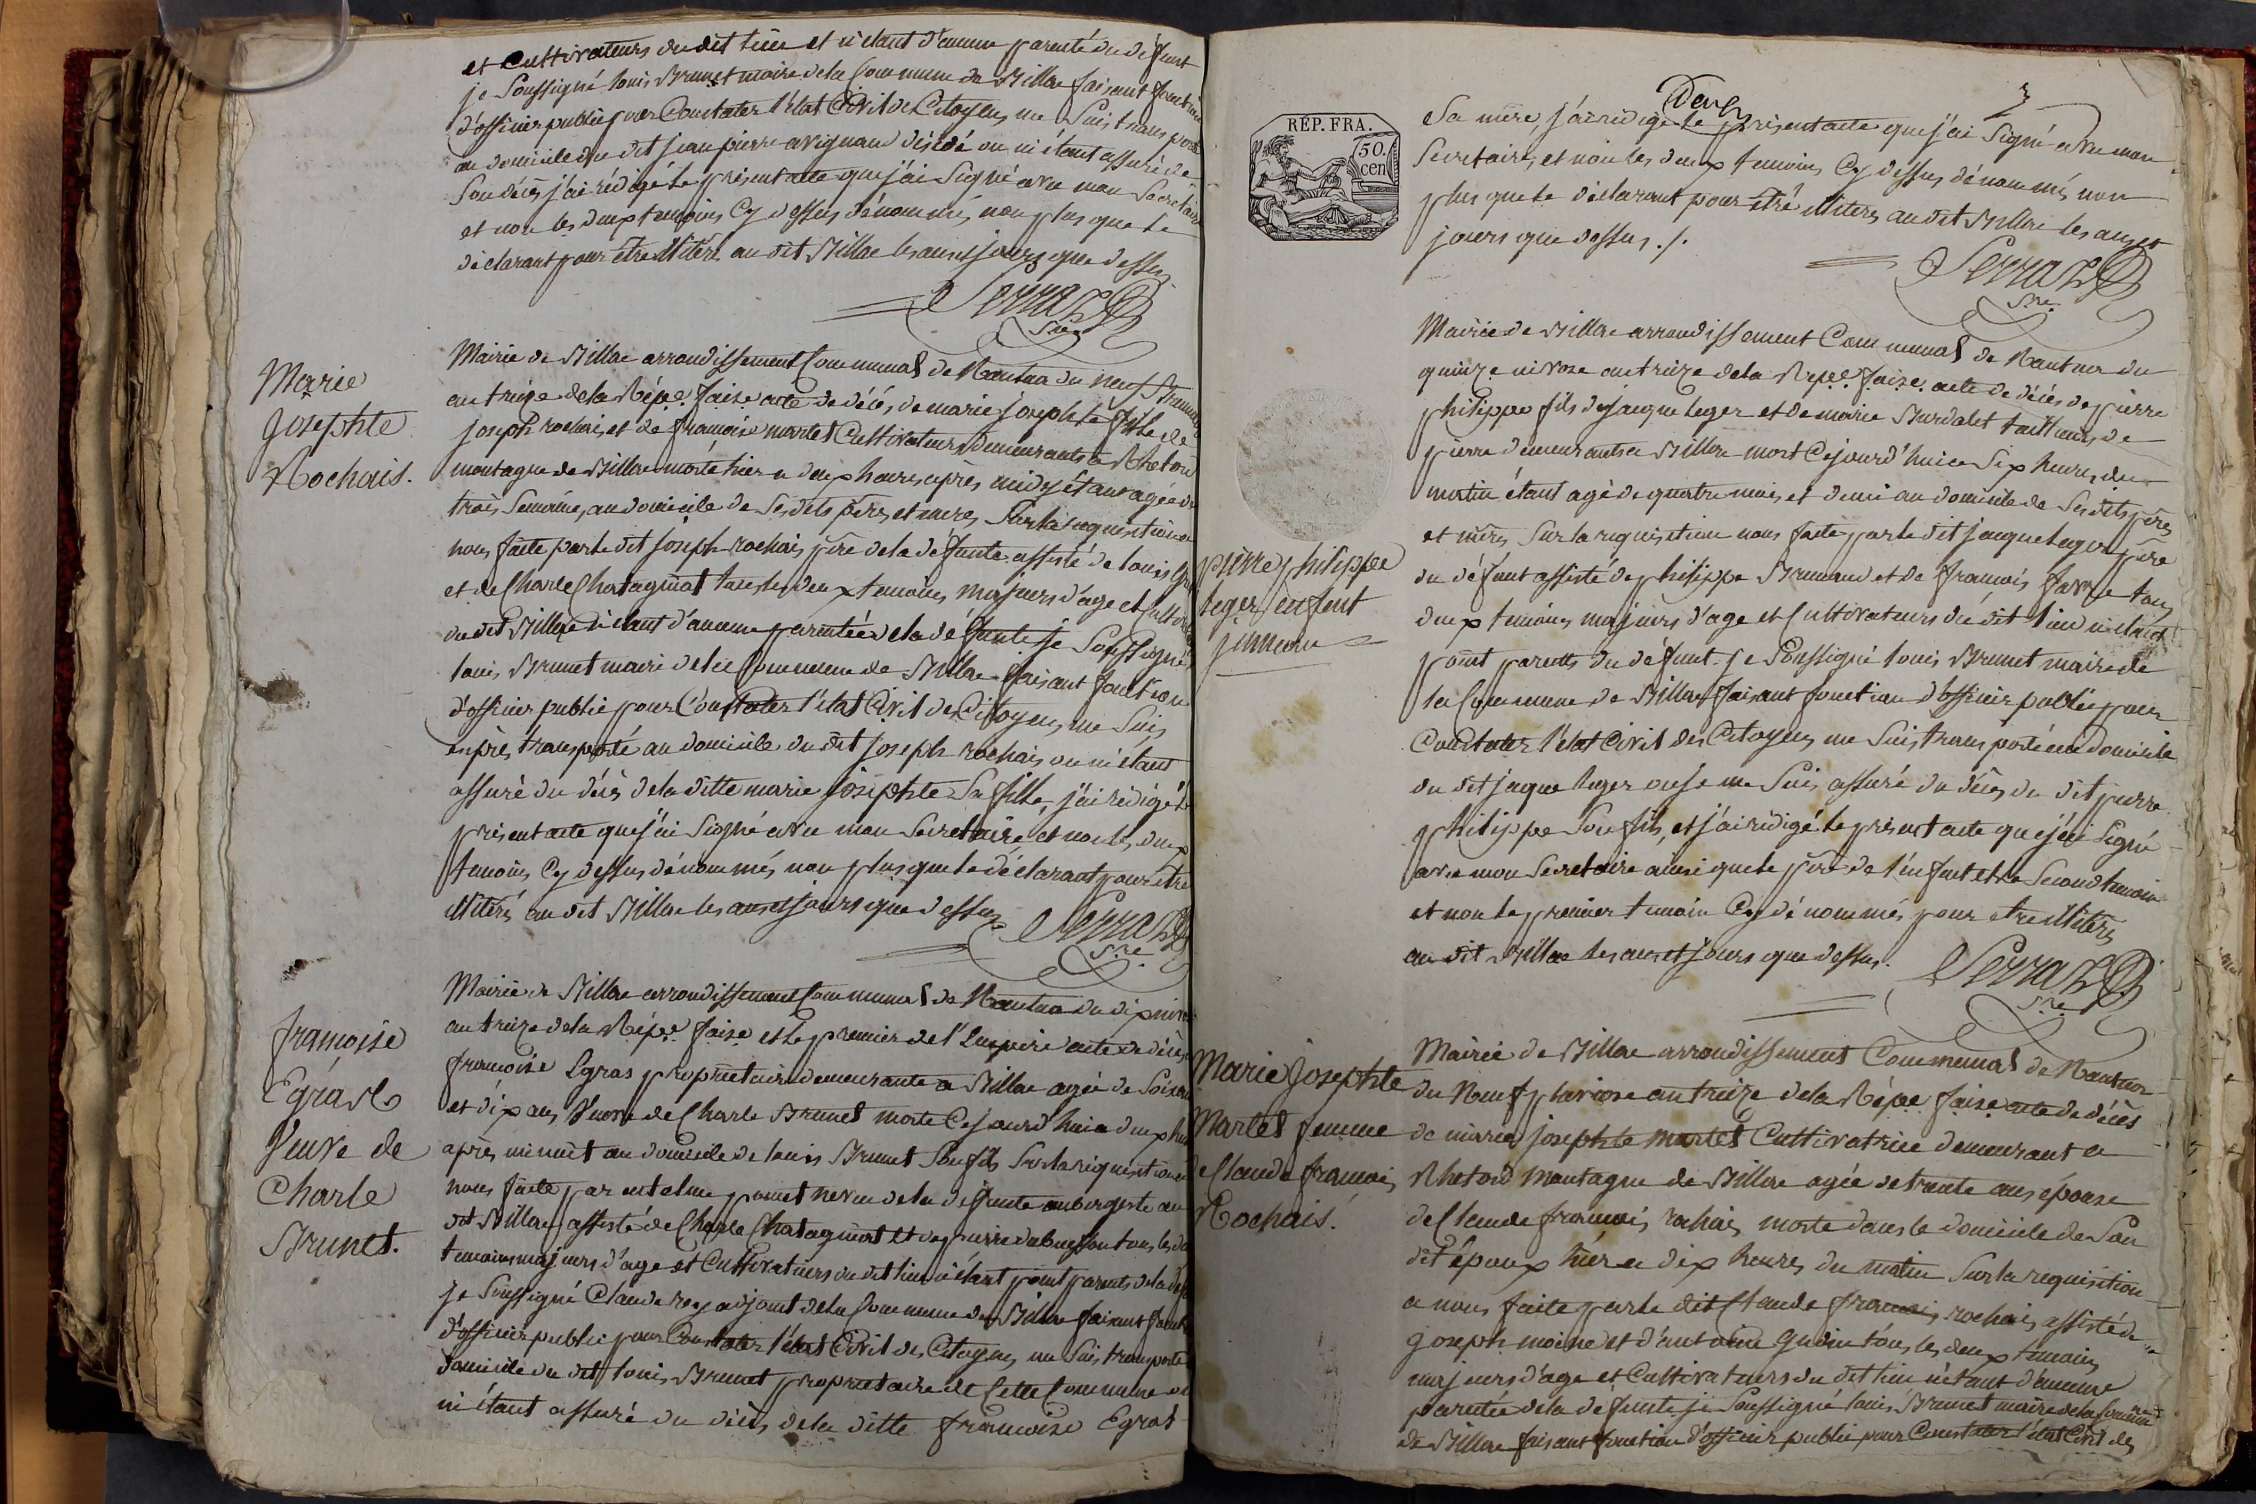 et Cultivateurs du dit lieu et n'étant d'aucune parenté du défunt
je Soussigné louis Brunet maire dela Commune de Billiae faisant fonction
d'officier public pour Constater l'état Civil des Citoyens me Suis transporté
au domicile du dit jean pierre avignon décédé ou m'étant assuré de
Son décès j'ai rédigé le présent acte que j'ai Signé avec mon Secrétaire
et non les deux temoins Cy dessus dénommés non plus que le
déclarant pour être illiterés au dit Billiae les an et jours que dessus
Serraz
S.re
Marie
Josephte
Rochais.
Mairie de Billiae arrondissement Communal de Nantua du neuf
an treize dela Rép.e f.aise acte de décés, de marie josephte fille de
joseph rochais et de françoise martel Cultivateurs Demeurants a Rhetord
montagne de Billiae morte hier a deux heures après midy étant agée de
trois Semaines, au domicile de Ses dits père et mere, Sur la requisition a
nous faite par le dit joseph rochais père dela défunte assisté de louis
et de Charle Chatagniat tous les deux temoins majeurs d'age et Cultivateurs
du dit Billiae n'étant d'aucune parentée dela défunte je Soussigné
louis Brunet maire dela Commune de Billiae faisant fonction
d'officier public pour Constater l'état Civil des Citoyens, me Suis
après transporté au domicile du dit joseph rochais ou m'étant
assuré du décès dela ditte marie josephte Sa fille, j'ai rédigé le
présent acte que j'ai Signé avec mon Secretaire et non les deux
temoins Cy dessus dénommés non plus que le déclarant pour être
illiterés au dit Billiae les an et jours que dessus
Serraz
S.re
françoise
Egras
Veuve de
Charle
Brunet.
Mairie de Billiae arrondissement Communal de Nantua du dix nivose
an treize dela Rép.e f.aise et le premier de l'Empire acte de décès
françoise Egras propriétaire demeurante a Billiae agée de Soixante
et dix ans, Veuve de Charle Brunet morte Cejourd'hui a deux heures
après minuit au domicile de louis Brunet Son fils Sur la requisition a
nous faite par entelme ponet neveu dela défunte aubergiste au
dit Billiae assisté de Charle Chatagniat et de pierre dubuisson tous les deux
temoins majeurs d'age et Cultivateurs du dit lieu n'étant point parents dela défunte
je Soussigné Claude rey adjoint dela Commune de Billiae faisant fonction
d'officier public pour Constater l'état Civil des Citoyens, me Suis transporté
domicile du dit louis Brunet propriétaire de Cette Commune ou
m'étant assuré du décès dela ditte françoise Egras
Deux
3
RÉP. FRA.
50.
cen.
Sa mère, j'ai rédigé le présent acte que j'ai Signé avec mon
Secretaire, et non les deux temoins Cy dessus dénommés, non
plus que le déclarant pour être illiterés au dit Billiae les an et
jours que dessus ./.
Serraz
S.re
pierre philippe
leger enfant
Mairie de Billiae arrondissement Communal de Nantua du
quinze nivose an treize dela Rép.e f.aise. acte de décès de pierre
philippe fils de jaque leger et de marie Burdalet tailleurs de
pierre demeurants a Billiae mort Cejourd'hui a Six heures, du
matin étant agé de quatre mois et demi au domicile de Ses dits père
et mère, Sur la requisition nous faite par le dit jaque leger père
du défunt assisté de philippe Brunand et de françois favre tous
deux temoins majeurs d'age et Cultivateurs du dit lieu n'étant
point parents du défunt. je Soussigné louis Brunet maire de
la Commune de Billiae faisant fonction d'officier public pour
Constater l'état Civil des Citoyens me Suis transporté au domicile
du dit jaque leger ou je me Suis assuré du décès du dit pierre
philippe Son fils, et j'ai rédigé le présent acte que j'ai Signé
avec mon Secretaire ainsi que le père de l'enfant et le Second temoin
et non le premier temoin Cy dénommés pour être illiterés
au dit Billiae les an et jours que dessus.
Serraz
S.re
Marie Josephte
Martel femme
de Claude françois
Rochais.
Mairie de Billiae arrondissement Communal de Nantua
du Neuf pluviose an treize dela Rép.e f.aise acte de décès
de marie josephte martel Cultivatrice demeurant a
Rhetord montagne de Billiae agée de trente ans épouse
de Claude françois rochais morte dans le domicile de Son
dit époux hier a dix heures du matin Sur la requisition
a nous faite par le dit Claude françois rochais assisté de
joseph moine et d'antoine Gudin tous, les deux temoins
majeurs d'age et Cultivateurs du dit lieu n'étant d'aucune
parentée dela défunte je Soussigné louis Brunet maire dela Commune
de Billiae faisant fonction d'officier public pour Constater l'état Civil des